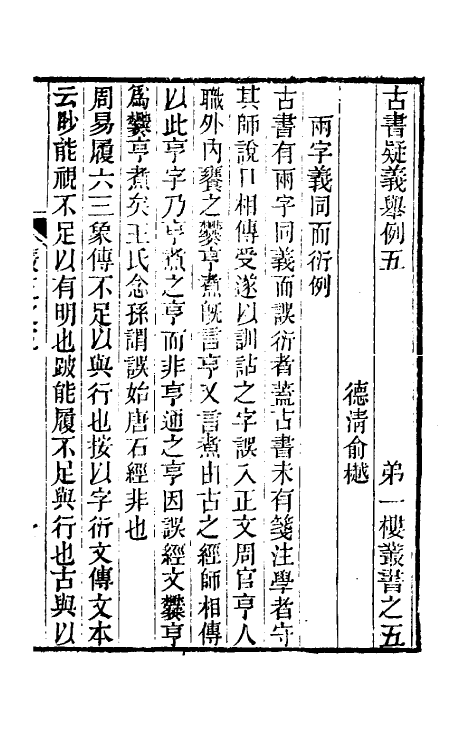 古書疑義舉例五　　　　第一樓叢書之五
德清俞樾
兩字義同而衍例
古書有兩字同義而誤衍者蓋古書未有箋注學者守
其師說口相傳受遂以訓詁之字誤入正文周官亨人
職外內饔之爨亨煮旣言亨又言煮由古之經師相傳
以此亨字乃亨煮之亨而非亨通之亨因誤經文爨亨
爲爨亨煮矣王氏念孫謂誤始唐石經非也
周易履六三象傳不足以與行也按以字衍文傳文本
云眇能視不足以有明也跛能履不足與行也古與以